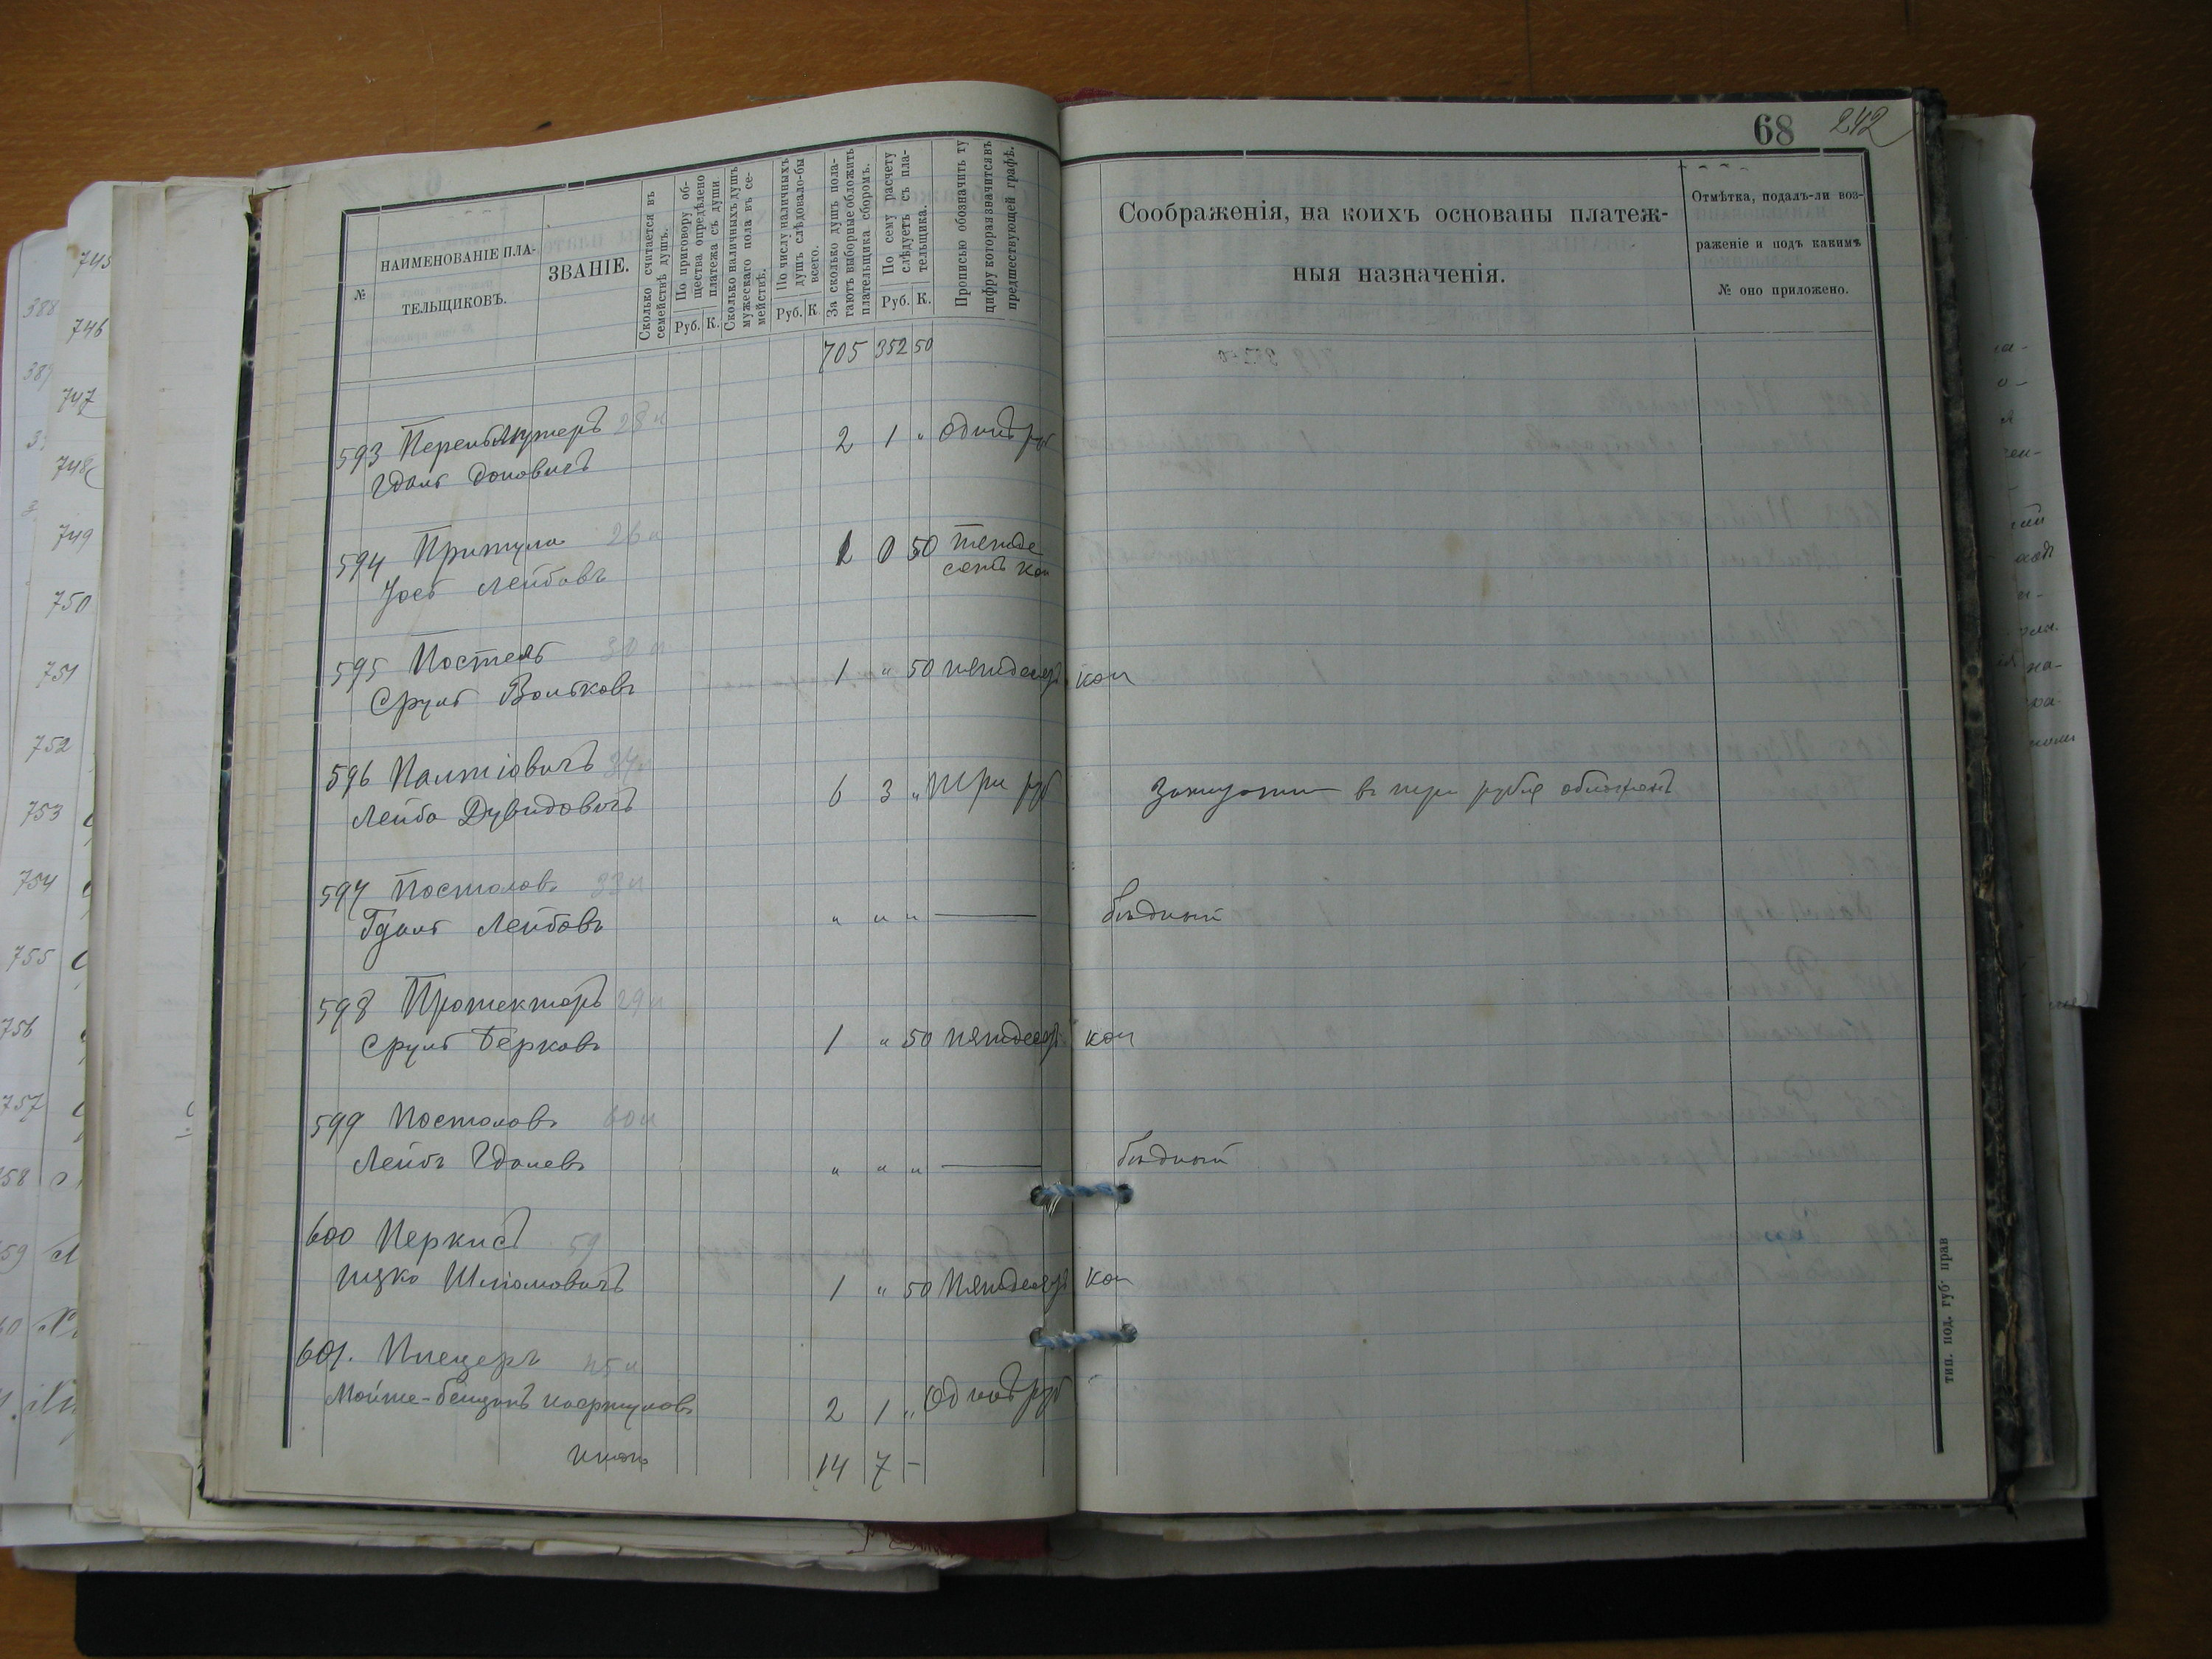 745
746
747
748
749
750
751
752
753
754
755
756
757
388
68 242
№
НАИМЕНОВАНІЕ ПЛА-
ТЕЛЬЩИКОВЪ.
ЗВАНІЕ.
Сколько считается въ
семействѣ душъ.
По приговору об-
щества опредѣлено
платежа съ души
Руб. К.
Сколько наличныхъ душъ
мужескаго пола въ се-
мействѣ.
По числу наличныхъ
душъ слѣдовало-бы
всего.
Руб. К.
За сколько душъ пола-
гаютъ выборные обложить
плательщика сборомъ.
По сему расчету
слѣдуетъ съ пла-
тельщика.
Руб. К.
Прописью обозначить ту
цифру которая значится въ
предшествующей графѣ.
Соображенія, на коихъ основаны платеж-
ныя назначенія.
Отмѣтка, подалъ-ли воз-
раженіе и подъ какимъ
№ оно приложено.
705 352 50
593 28 2 1 " Одинъ руб
594 Притула 26 1 0 50 пятьде
Іось Лейбовъ сятъ коп
595 Постель 30 1 " 50 пятьдесят коп
Сруль Вольковъ
596 34 6 3 " Три руб в три рубля обложенъ
Лейба Дувидовичъ
597 Постоловъ 33 " " " — бѣдный
Гдаль Лейбовъ
598 Протекторъ 29 1 " 50 пятьдесят коп
Сруль Берковъ
599 Постоловъ 60 " " " — бѣдный
Лейбъ Гдалевъ
600 Перкисъ 59 1 " 50 Пятьдесят коп
Ицко Шліомовичъ
601. 45 2 1 " Одинъ руб
Мойше-
Итого 14 7 -
тип. под. губ. прав